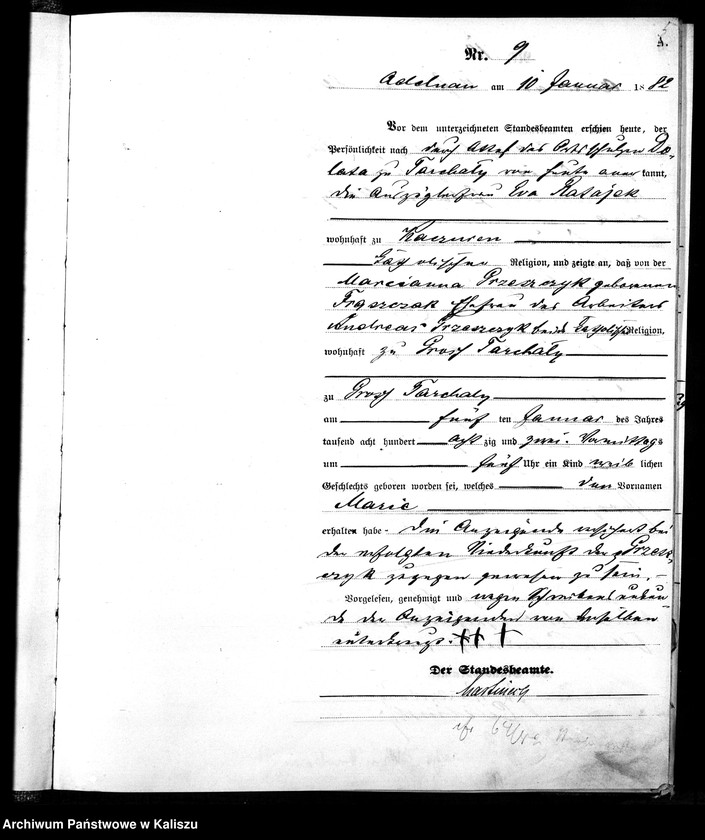 A.
Nr. 9
Adelnau am 10 Januar 1882
Vor dem unterzeichneten Standesbeamten erschien heute, der
Persönlichkeit nach durch Attest des Ortsschulzen Do-
lata zu Tarchaly von heute aner kannt,
die Auszüglerfrau Eva Ratajek
wohnhaft zu
katholischer Religion, und zeigte an, daß von der
Marcianna Przeszczyk geborenen
Ehefrau des Arbeiters
Andreas Przeszczyk beide katholisch Religion,
wohnhaft zu Gross Tarchaly
zu Gross Tarchaly
am fünf ten Januar des Jahres
tausend acht hundert acht zig und zwei. Vormittags
um fünf Uhr ein Kind weib lichen
Geschlechts geboren worden sei, welches den Vornamen
Marie
erhalten habe - Die Anzeigende versichert bei
der erfolgten Niederkunft der Przesz-
czyk zugegen gewesen zu sein. -
Vorgelesen, genehmigt und wegen Schreibensunkun-
de der Anzeigenden von derselben
unterkreuzt. +++
Der Standesbeamte.
Archiwum Państwowe w Kaliszu